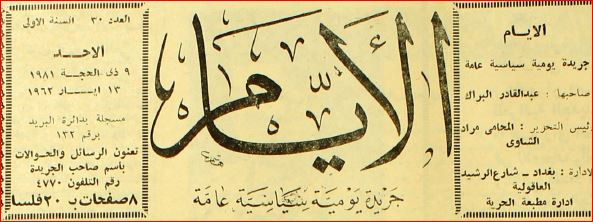 الايام
جريدة يومية سياسية عامة
صاحبها : عبدالقادر البراك
رئيس التحرير : المحامى مراد
الشاوى
لادارة : بغداد - شارع الرشيد
العاقولية
ادارة مطبعة الحرية
الأيام
جريدة يومية سياسية عامة
العدد ٣٠ السنة الاولى
الاحد
٩ ذى الحجة ١٩٨١
١٣ ايار ١٩٦٢
مسجلة بدائرة البريد
برقم ١٣٢
تعنون الرسائل والحوالات
باسم صاحب الجريدة
رقم التلفون ٤٧٧٠
٨ صفحات بـ ٢٠ فلسا